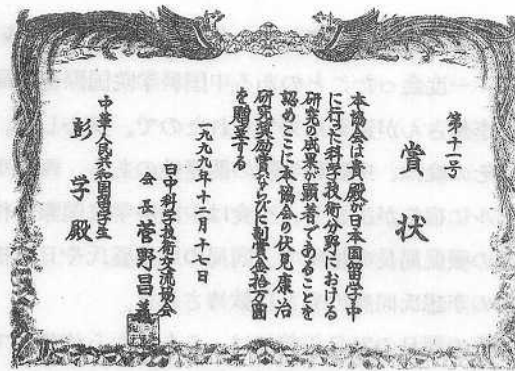 第十一号
賞状
本協会は貴殿が日本国留学中
に行った科学技術分野における
研究の成果が顕著であることを
認めここに本協会の伏見康治
研究奨励賞ならびに副賞金拾万圓
を贈呈する
一九九九年十二月十一日
日中科学技術交流協会
会長 菅野昌義
中華人民共和国留学生
彭 学 殿